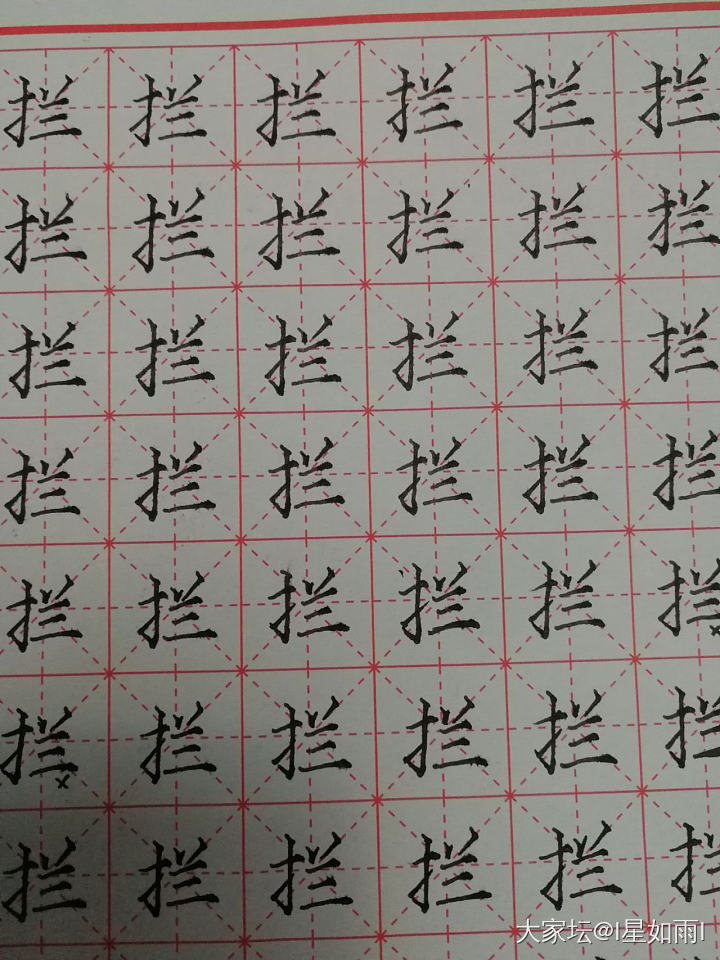 拦 拦 拦 拦 拦 拦
拦 拦 拦 拦 拦 拦
拦 拦 拦 拦 拦 拦
拦 拦 拦 拦 拦 拦
拦 拦 拦 拦 拦 拦
拦 拦 拦 拦 拦 拦
拦 拦 拦 拦 拦 拦
大家坛@l星如雨l